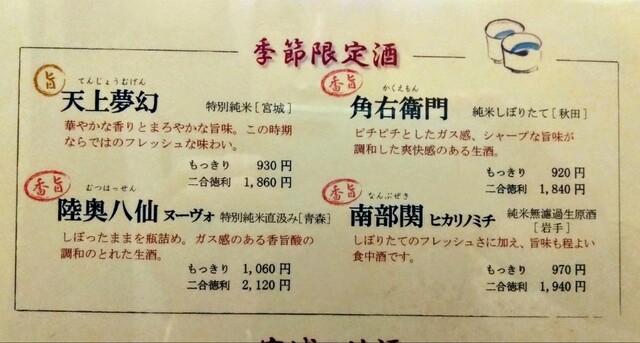 季節限定酒
旨
てんじょうむげん
天上夢幻 特別純米[宮城]
華やかな香りとまろやかな旨味。この時期
ならではのフレッシュな味わい。
もっきり 930円
二合徳利 1,860円
香旨
かくえもん
角右衛門 純米しぼりたて[秋田]
ピチピチとしたガス感、シャープな旨味が
調和した爽快感のある生酒。
もっきり 920円
二合徳利 1,840円
香旨
むつはっせん
陸奥八仙 ヌーヴォ 特別純米直汲み[青森]
しぼったままを瓶詰め。ガス感のある香旨酸の
調和のとれた生酒。
もっきり 1,060円
二合徳利 2,120円
香旨
なんぶぜき
南部関 ヒカリノミチ 純米無濾過生原酒
[岩手]
しぼりたてのフレッシュさに加え、旨味も程よい
食中酒です。
もっきり 970円
二合徳利 1,940円